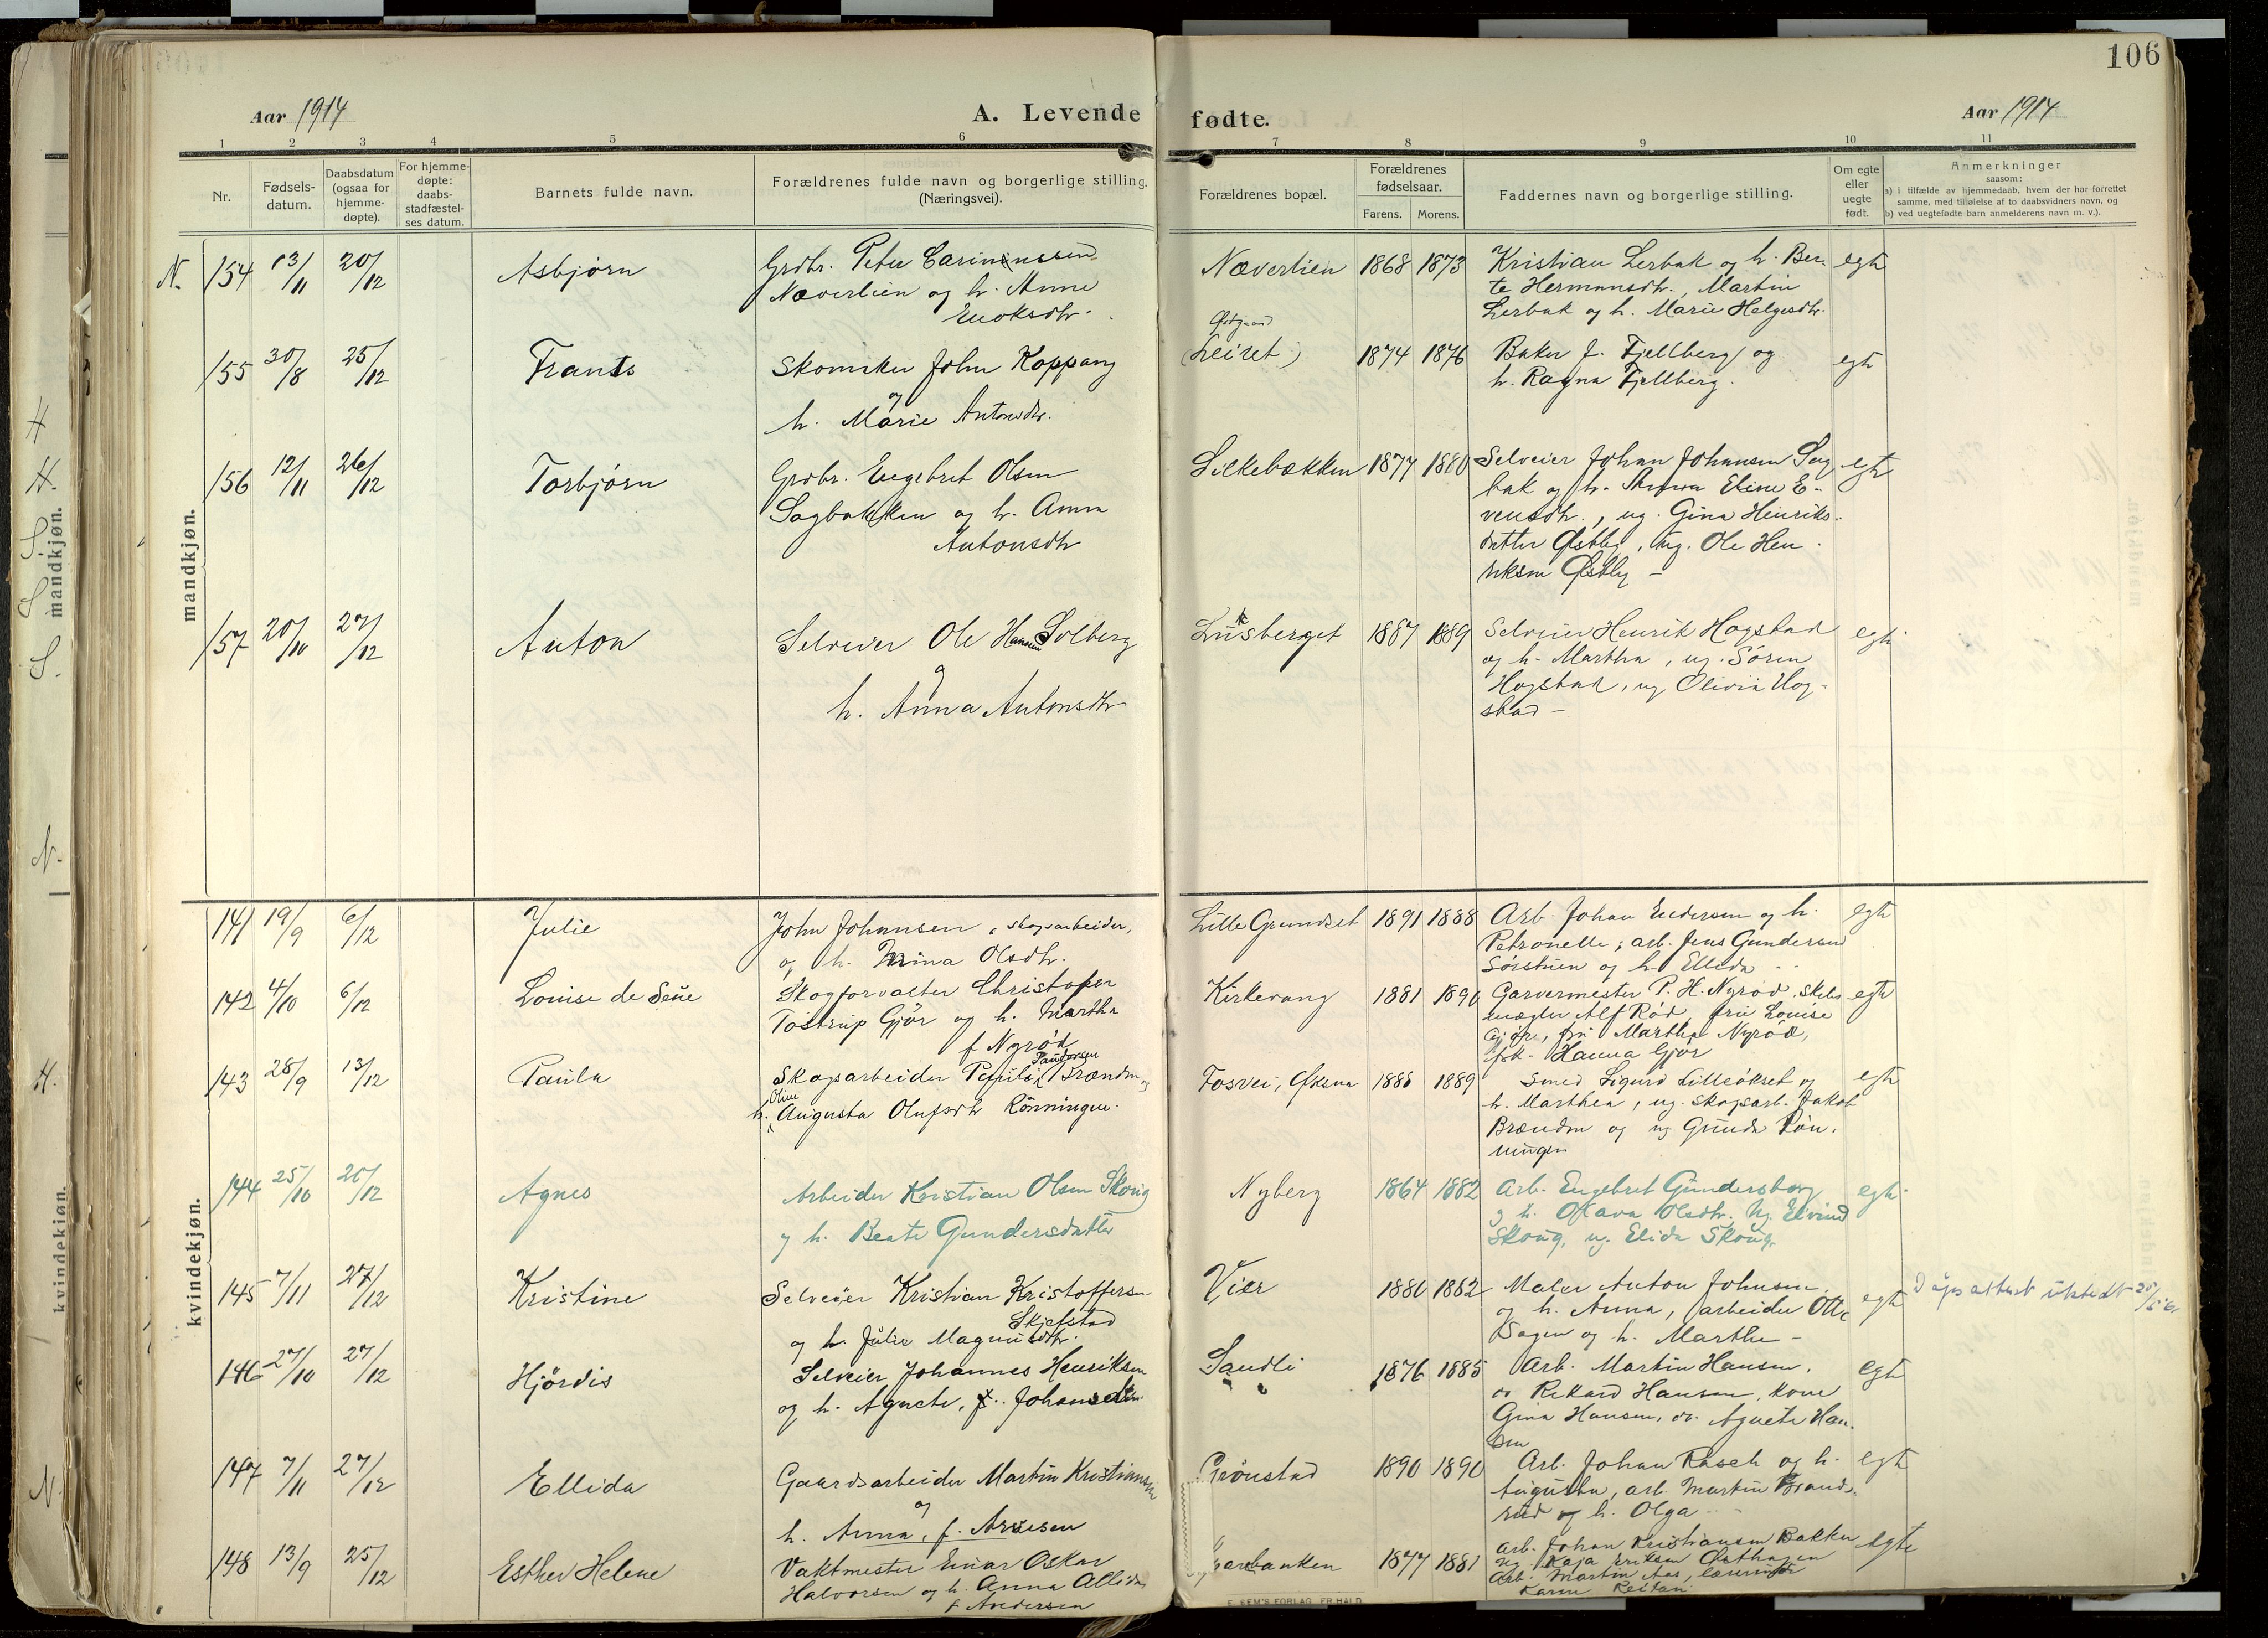 106
Aar 1914
A. Levende
fødte.
Aar 1914
1 2 3 4 5 6 7 8 9 10 11
Nr.
Fødsels-
datum.
Daabsdatum
(ogsaa for
hjemme-
døpte).
For hjemme-
døpte:
daabs-
stadfæstel-
ses datum.
Barnets fulde navn.
Forældrenes fulde navn og borgerlige stilling.
(Næringsvei).
Forældrenes bopæl.
Forældrenes
fødselsaar.
Farens. Morens.
Faddernes navn og borgerlige stilling.
Om egte
eller
uegte
født.
Anmerkninger
saasom:
a) i tilfælde av hjemmedaab, hvem der har forrettet
samme, med tilføielse af to daabsvidners navn, og
b) ved uegtefødte barn anmelderens navn m. v.).
mandkjøn.
N. 154 13/11 20/12 Asbjørn
Grdbr. Peter
Næverlien og h. Anne
Enoksdtr.
Næverlien 1868 1873
Kristian Lerbak og h. Ber-
te Hermansdtr., Martin
Lerbak og h. Marie Helgesdtr.
egte
155 30/8 25/12 Frants
Skomaker John Koppang
og
h. Marie Antonsdtr.
(Leiret) 1874 1876
Baker J. Fjellberg og
h. Ragna Fjellberg.
egte
156 12/11 26/12 Torbjørn
Grdbr. Engebret Olsen
Sagbakken og h. Anna
Antonsdtr
Silkebækken 1877 1880
Selveier Johan Johansen Sag
bak og h. Eline E-
vensdtr., ug. Gina Henriks-
datter Østby, ug. Ole Hen-
riksen Østby –
egte
157 20/10 27/12 Anton
Selveier Ole Hansen Solberg
og
h. Anna Antonsdtr
1887 1889
Selveier Henrik Hogstad
og h. Martha, ug. Søren
Hogstad, ug Olivia Hog-
stad –
egte
kvindekjøn.
141 19/9 6/12 Julie
John Johansen, skogsarbeider,
og h. Mina Olsdtr.
Lille Grundset 1891 1888
Arb. Johan Endersen og h.
Petronelle; arb. Jens Gundersen
og h. Ellida
egte
142 4/10 6/12 Louise de Seüe
Skogforvalter Christofer
Tostrup Gjør og h. Martha
f Nyrød
Kirkevang 1881 1890
Garvermester P. H. Nyrød, skibs
mægler Alf Rød, fru Louise
Gjør, fru Martha Nyrød,
frk. Hanna Gjør
egte
143 28/9 13/12 Paula
Skogsarbeider
h. Oline Augusta Olufsdtr Rönningen.
Fosvei, Øksna 1885 1889
Smed Sigurd Lilleökset og
h. Marthea, ug. skogsarb. Jakob
Brænden og ug Gunda Rön-
ningen
egte
144 25/10 20/12 Agnes
Arbeider Kristian Olsen Skoug
og h. Beate Gundersdatter
Nyberg 1864 1882
Arb. Engebret Gundersborg
og h. Olava Olsdtr. Ug. Eivind
Skoug, ug. Elida Skoug.
egte
145 7/11 27/12 Kristine
Selveier Kristian Kristoffersen
Skjefstad
og h. Julie Magnusdtr.
Vier 1880 1882
Maler Anton Johnsen
og h. Anna, arbeider Otto
Sagen og h. Marthe –
egte
Dåpsattest utstedt
146 27/10 27/12 Hjördis
Selveier Johannes Henriksen
og h. Agnete, f. Johansen
Sandli 1876 1885
Arb. Martin Hansen,
do Rikard Hansen, kone
Gina Hansen, do. Agnete Han-
sen
egte
147 7/11 27/12 Ellida
Gaardsarbeider Martin Kristiansen
og
h. Anna, f. Arnesen
Grönstad 1890 1890
Arb. Johan Rasch og h.
Augusta, arb. Martin Brands-
rud og h. Olga
egte
148 13/9 25/12 Esther Helene
Vaktmester Einar Oskar
Halvorsen og h. Anna Allida
f Andersen
1877 1881
Arb. Johan Kristiansen Bakken
ug. Kaja Eriksen Østhagen
Arb. Martin Aas,
Karen Reitan
egte
E. SEM'S FORLAG, FR.HALD